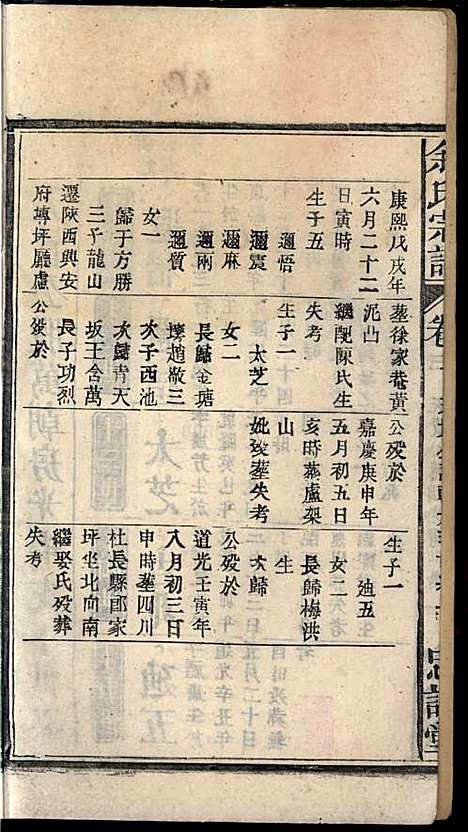 余氏宗譜
卷
康熙戊戌年
六月二十二
日寅時
生子五
邇悟
邇震
邇麻
邇兩
邇質
女一
歸于方勝
三子龍山
遷陝西興安
府塼坪廳盧
葬徐家菴黃
泥凸
繼配陳氏生
失考
生子一
太芝
女二
長歸金瑭
壋趙敬三
次子西池
次歸青天
坂王含萬
長子功烈
公歿於
公歿於
嘉慶庚申年
五月初五日
亥時葬盧架
山
妣歿葬失考
生子一
廸五
女二
長歸梅洪
生
次歸
公歿於
道光壬寅年
八月初三日
申時葬四川
杜長縣郎家
坪坐北向南
繼娶氏歿葬
失考